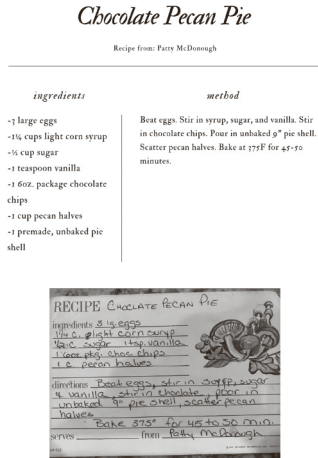 Chocolate Pecan Pie
Recipe from: Patty McDonough
ingredients
-3 large eggs
-1¼ cups light corn syrup
-½ cup sugar
-1 teaspoon vanilla
-1 6oz. package chocolate
chips
-1 cup pecan halves
-1 premade, unbaked pie
shell
method
Beat eggs. Stir in syrup, sugar, and vanilla. Stir
in chocolate chips. Pour in unbaked 9" pie shell.
Scatter pecan halves. Bake at 375F for 45-50
minutes.
RECIPE CHOCLATE PECAN PIE
ingredients 3 lg. eggs
1¼ C. light corn syrup
½ C sugar 1 tsp. vanilla
1 6oz pkg. choc chips
1 C. pecan halves
directions Beat eggs, stir in syrup, sugar
& vanilla, stir in choclate, poor in
unbaked 9" pie shell, scatter pecan
halves
Bake 375° for 45 to 50 min.
serves from Patty McDonough